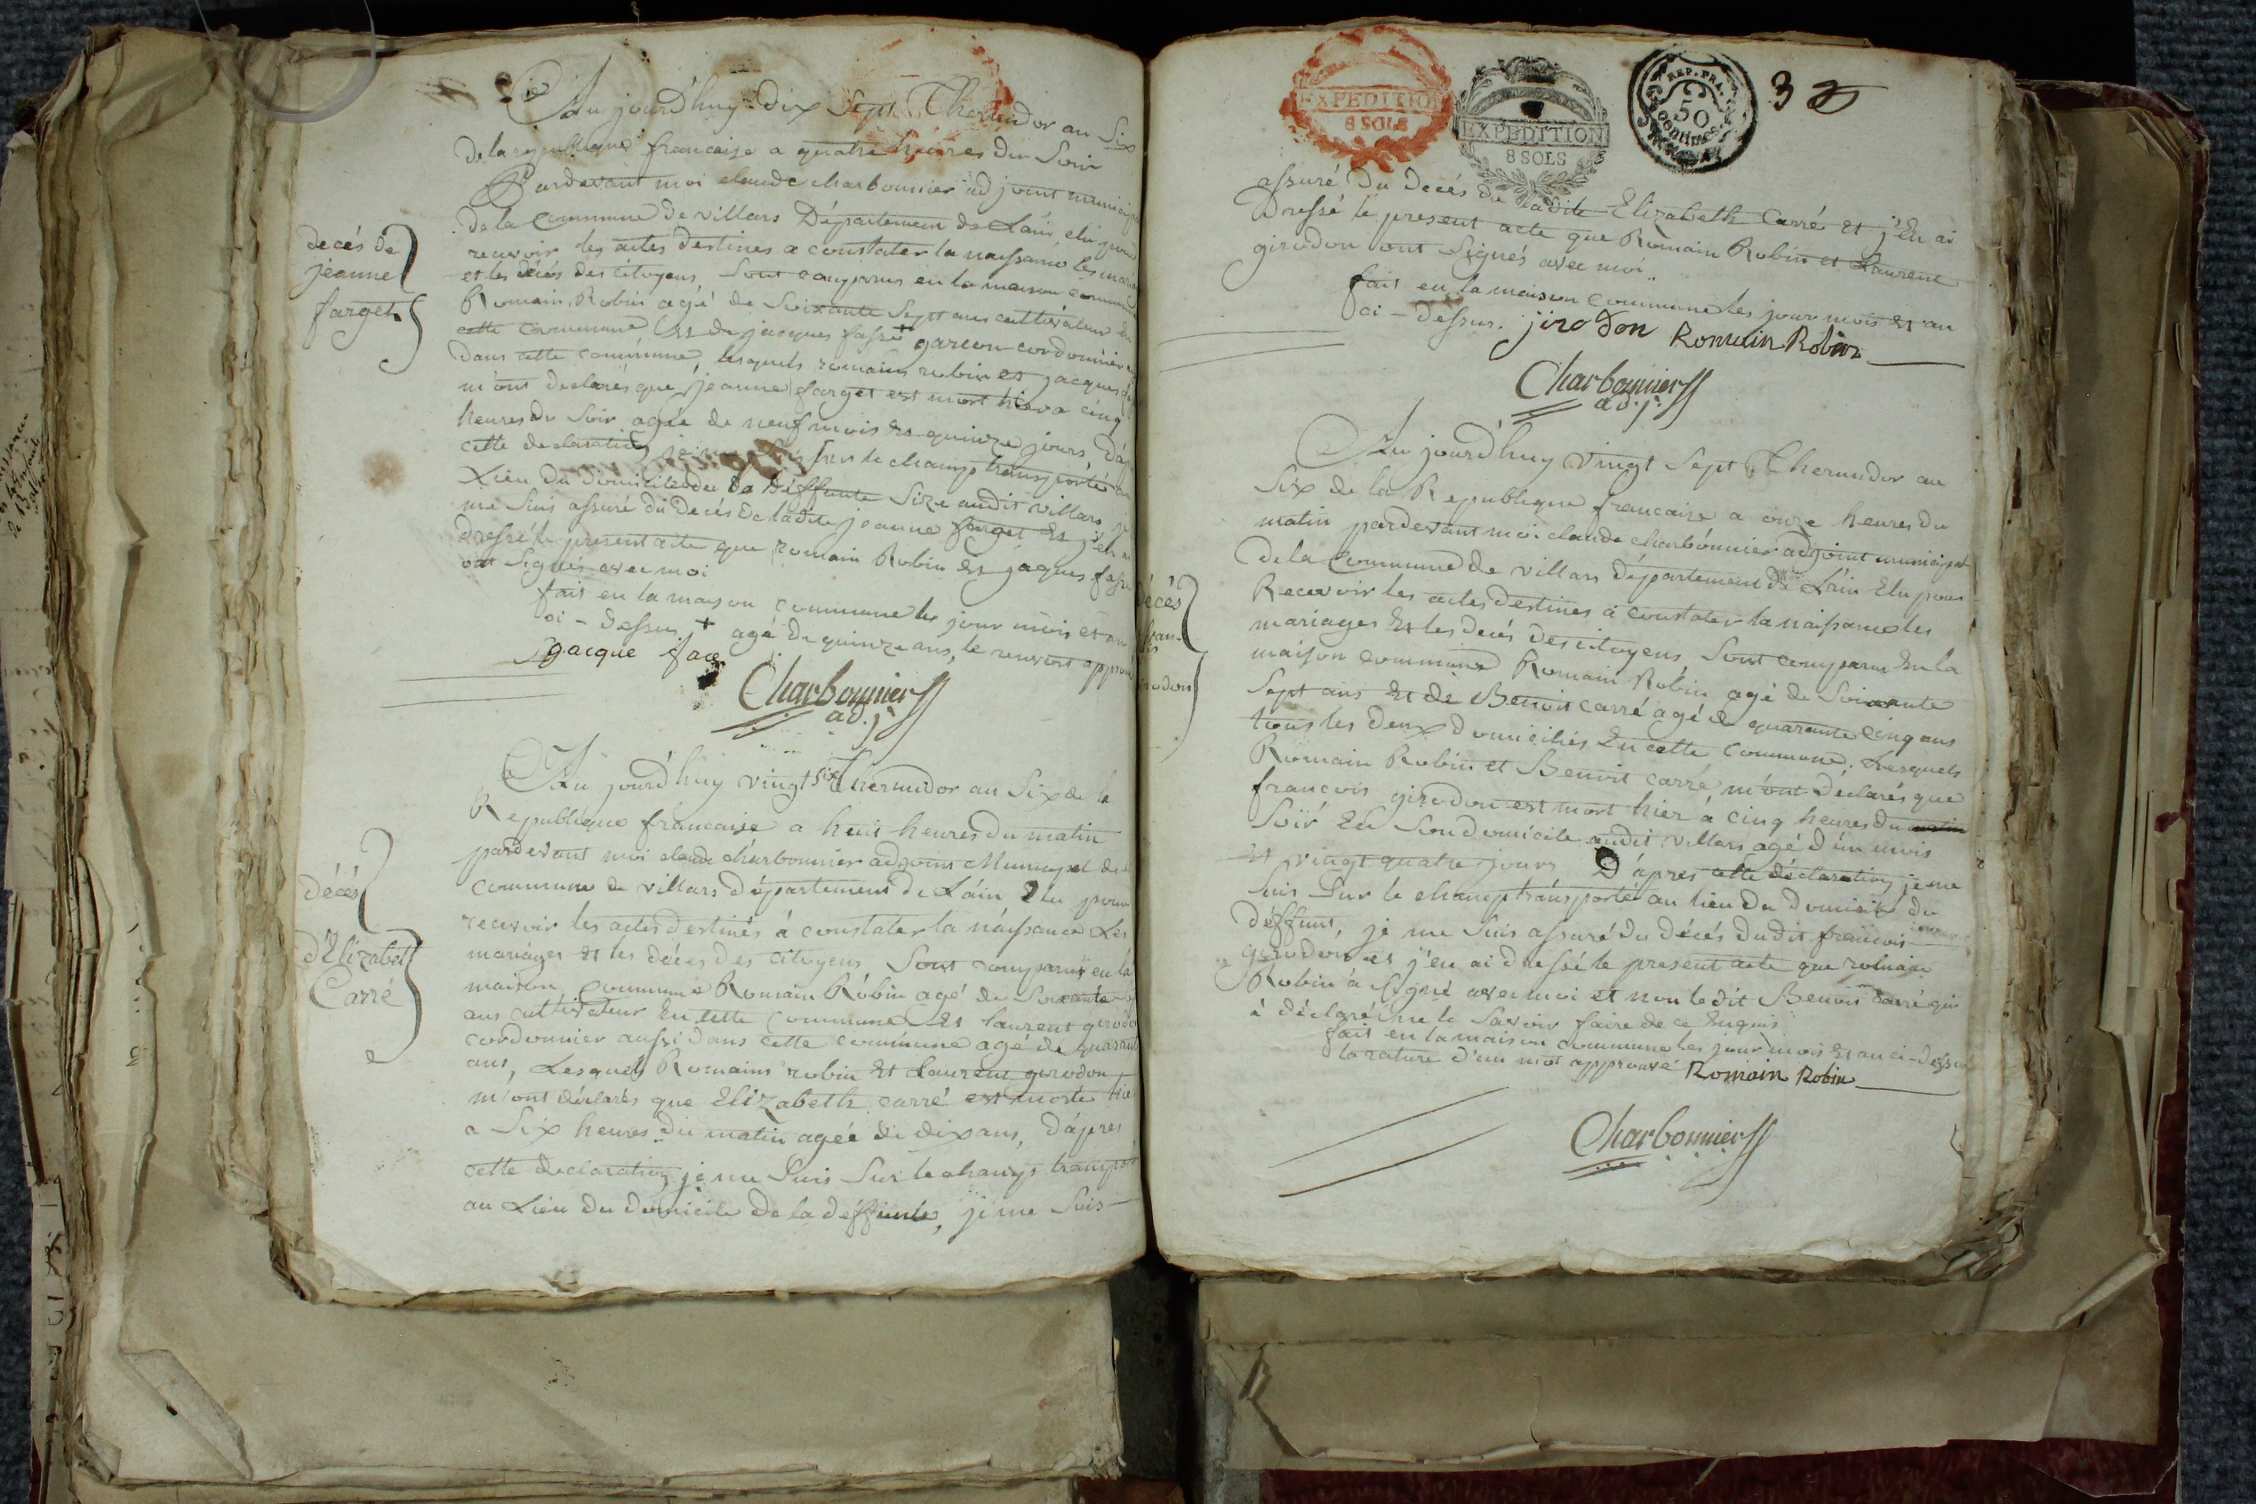 Au jourd'huy dix Sept Thermidor an Six
de la republique francaise a quatre heures du Soir
Pardevant moi claude charbonnier adjoint municipal
de la Commune de villars Département de Lain elu pour
recevoir les actes destines a constater la naissance les maria
et les décés des citoyens, Sont comparus en la maison commune
Romain Robin agé de Soixante Sept ans cultivateur en
cette Commune Et de jacques fasse + garcon cordonnier
dans cette commune, lesquels romain robin et jacques
m'ont declarés que jeanne farget est mort hier a cinq
heures du Soir agée de neuf mois et quinze jours D'a
cette declaration je me Suis Sur le champ transporté au
Lieu du domicile de la déffunte Size audit villars, je
me Suis assuré du Decés de ladite jeanne farget Et j'en ai
dressé le present acte que Romain Robin Et jaques fasse
ont Signés avec moi
fait en la maison commune les jour mois et an
ci-dessus + agé de quinze ans, le renvoit approu
gacque face
Charbonnier
adj.
decés de
jeanne
farget
Au jourd'huy vingt six Thermidor an Six de la
Republique francaise a huit heures du matin
pardevant moi claude charbonnier adjoint Municipal de
commune de villars département de Lain Elu pour
recevoir les actes destinés à constater la náissance Les
mariages et les décés des citoyens Sont comparus en la
maison commune Romain Róbin agé de Soixante
ans cultivateur En cette Commune Et laurent girodon
cordonnier aussi dans cette commune agé de quarante
ans, Lesquels Romains robin Et Laurent girodon
m'ont déclarés que Elizabeth carré est morte hier
a Six heures du matin agée de dix ans, D'àpres
cette declaration je me Suis Sur le champ transpor
au Lieu du domicile de la déffunte, je me Suis
Décés
d'Elizabet
Carré
EXPEDITION
8 SOLS
EXPEDITION
8 SOLS
REP. FRA.
50
centimes
3
assuré du Decés de ladite Elizabeth Carré Et j'En ai
Dressé le present acte que Romain Robin et Laurent
girodon ont Signés avec moi
fait en la maison commune les jour mois Et an
ci-dessus. jirodon Romain Robin
Charbonnier
adj.
Au jourd'huy vingt Sept Thermidor an
Six de la Republique francaise a onze heures du
matin pardevant moi claude charbónnier adjoint municipal
de la Commune de villars département de Láin Elu pour
Recevoir les actes destines à constater la naissance les
mariages Et les decés des citoyens, Sont comparus En la
maison commune Romain Robin agé de Soixante
Sept ans Et de Benoit carré agé de quarante cinq ans
tous les deux domiciliés En cette Commune. Lesquels
Romain Robin et Benoit carré m'ont déclarés que
francois girodon est mort hier à cinq heures du matin
Soir En Son domicile audit villars agé d'un mois
Et vingt quatre jours D'ápres cette déclaration je me
Suis Sur le champ transporté au lieu du domicile du
déffunt, je me Suis assuré du décés dudit francois
girodon et j'en ai dressé le present acte que romain
Robin à Signé avec moi et non ledit Benoit carré qui
à déclaré ne le Savoir faire de ce Enquis
fait en la maison commune les jour mois Et an ci-dessus
la rature d'un mot approuvé Romain Robin
Charbonnier
décés
fran
is
irodon